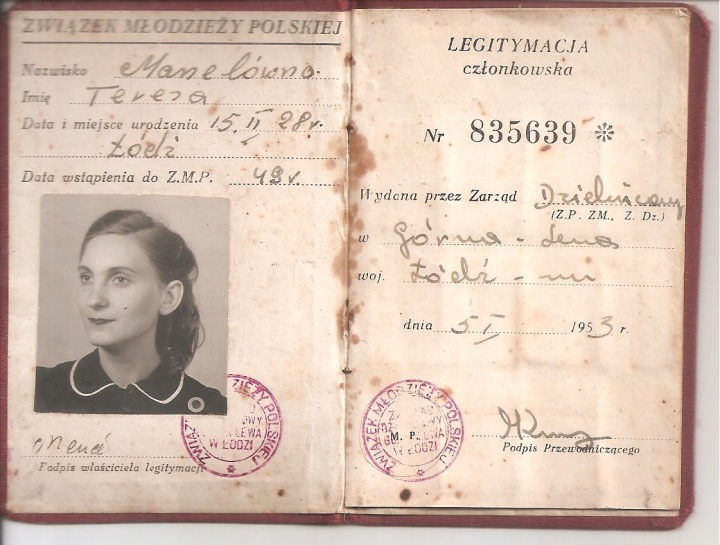 ZWIĄZEK MŁODZIEŻY POLSKIEJ
Nazwisko Manelówna
Imię Teresa
Data i miejsce urodzenia 15.II 28 r.
Łódź
Data wstąpienia do Z.M.P. 49 r.
Podpis właściciela legitymacji
ZWIĄZEK MŁODZIEŻY POLSKIEJ
W ŁODZI
LEGITYMACJA
członkowska
Nr 835639
Wydana przez Zarząd Dzielnicowy
(Z.P. ZM., Z. Dz.)
w Górna - Lewa
woj. Łódź - m
dnia 5 I 1953 r.
ZWIĄZEK MŁODZIEŻY POLSKIEJ
W ŁODZI
M. P.
Podpis Przewodniczącego